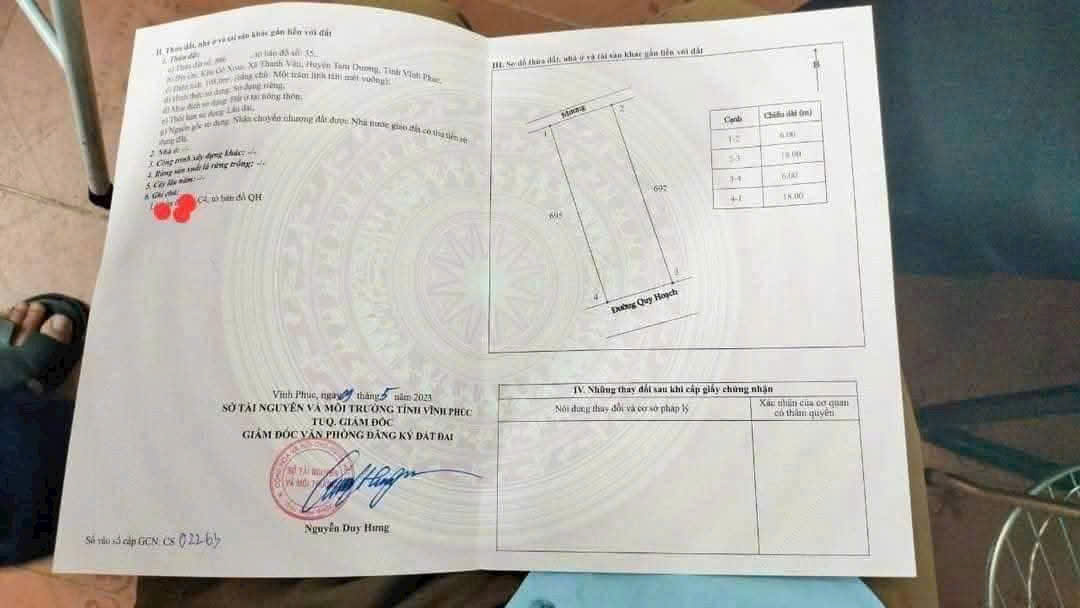 II. Thửa đất, nhà ở và tài sản khác gắn liền với đất
1. Thửa đất:
a) Thửa đất số: , tờ bản đồ số: 35,
b) Địa chỉ: Khu Gò Xoan, Xã Thanh Vân, Huyện Tam Dương, Tỉnh Vĩnh Phúc,
c) Diện tích: 108,0m², (bằng chữ: Một trăm linh tám mét vuông);
d) Hình thức sử dụng: Sử dụng riêng;
đ) Mục đích sử dụng: Đất ở tại nông thôn;
e) Thời hạn sử dụng: Lâu dài;
g) Nguồn gốc sử dụng: Nhận chuyển nhượng đất được Nhà nước giao đất có thu tiền sử
dụng đất.
2. Nhà ở: -/-
3. Công trình xây dựng khác: -/-
4. Rừng sản xuất là rừng trồng: -/-
5. Cây lâu năm: -/-
6. Ghi chú:
C4, tờ bản đồ QH
Vĩnh Phúc, ngày 09 tháng 5 năm 2023
SỞ TÀI NGUYÊN VÀ MÔI TRƯỜNG TỈNH VĨNH PHÚC
TUQ. GIÁM ĐỐC
GIÁM ĐỐC VĂN PHÒNG ĐĂNG KÝ ĐẤT ĐAI
SỞ TÀI NGUYÊN
VÀ MÔI TRƯỜNG
Nguyễn Duy Hưng
Số vào sổ cấp GCN: CS 02265
III. Sơ đồ thửa đất, nhà ở và tài sản khác gắn liền với đất
B
Mương
1
2
695
692
4
3
Đường Quy Hoạch
Cạnh Chiều dài (m)
1-2 6.00
2-3 18.00
3-4 6.00
4-1 18.00
IV. Những thay đổi sau khi cấp giấy chứng nhận
Nội dung thay đổi và cơ sở pháp lý
Xác nhận của cơ quan
có thẩm quyền